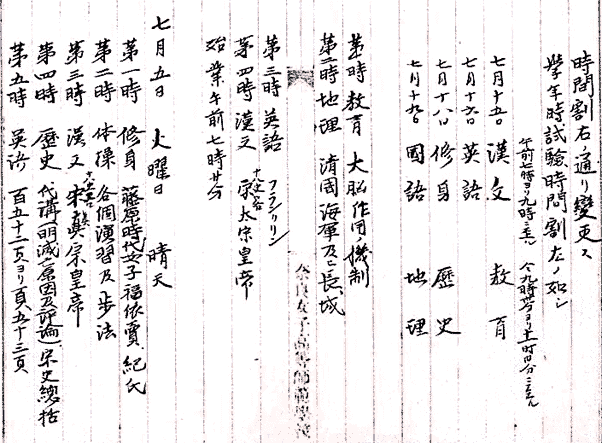 時間割右ノ通リ変更ス
學年試驗時間割左ノ如シ
午前七時ヨリ九時
仝九時
七月十五日 漢文 教育
七月十六日 英語
七月十八日 修身 歴史
七月十九日 國語 地理
第一時 教育 大脳作用ノ機制
第二時 地理 清國海軍及ビ長城
第三時 英語 フランクリン
第四時 漢文 宋太宗皇帝
始業午前七時廿分
奈良女子高等師範學校
七月五日 火曜日 晴天
第一時 修身 藤原時代女子福依賣、紀氏
第二時 体操 各個演習及ビ歩法
第三時 漢文 宋真宗皇帝
第四時 歴史 代講、明滅亡原因及評論、宋史總括
第五時 英語 百五十二頁ヨリ百五十三頁